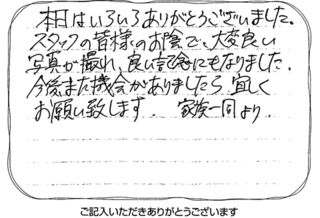 本日はいろいろありがとうございました。
スタッフの皆様のお陰で、大変良い
写真が撮れ、良い記念にもなりました。
今後また機会がありましたら宜しく
お願い致します。 家族一同より。
ご記入いただきありがとうございます